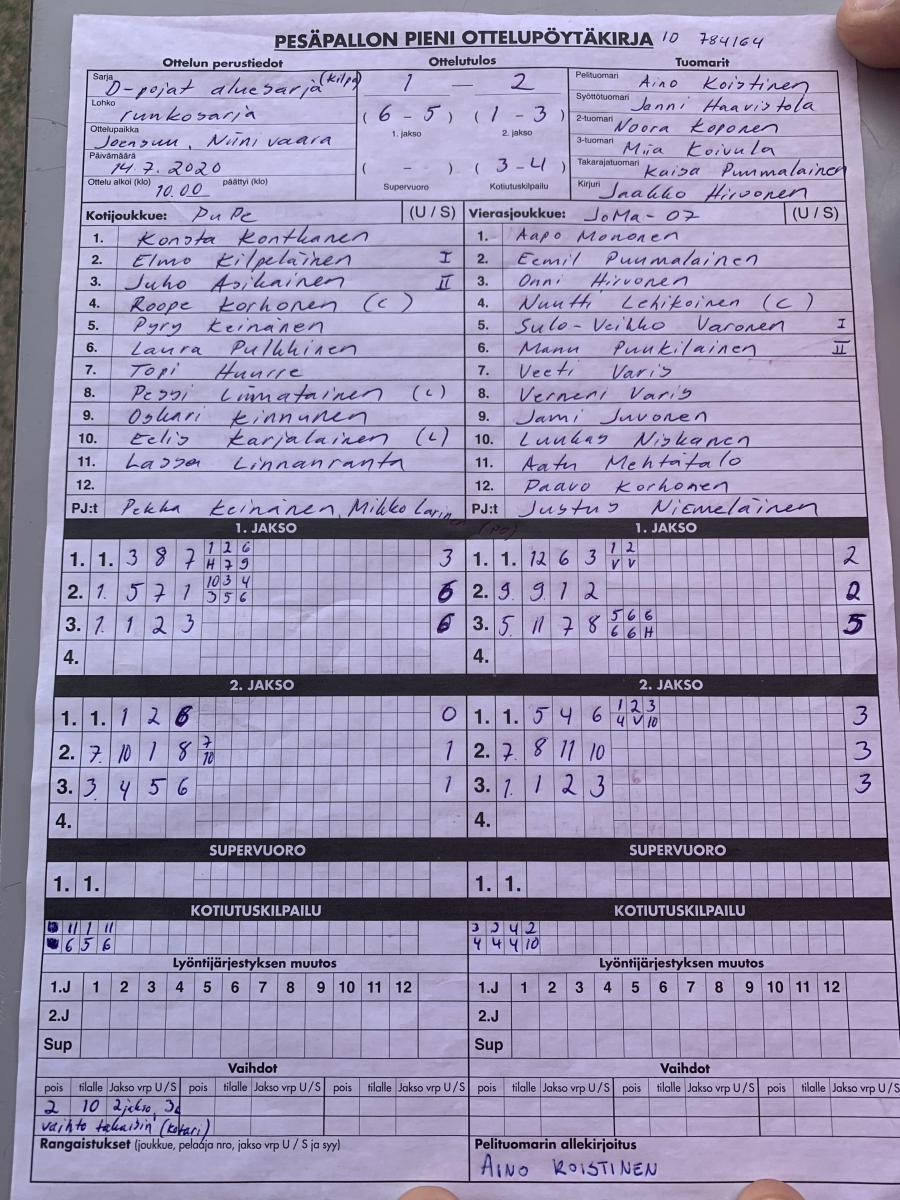 PESÄPALLON PIENI OTTELUPÖYTÄKIRJA ID 784164
Ottelun perustiedot Ottelutulos Tuomarit
Sarja D-pojat aluesarja (kilpa)
Lohko runkosarja
Ottelupaikka Joensuu, Niinivaara
Päivämäärä 14.7.2020
Ottelu alkoi (klo) 10.00 päättyi (klo)
1 — 2
(6 - 5) (1 - 3)
1. jakso 2. jakso
( - ) (3 - 4)
Supervuoro Kotiutuskilpailu
Pelituomari Aino Koistinen
Syöttötuomari Janni Haavistola
2-tuomari Noora Koponen
3-tuomari Miia Koivula
Takarajatuomari Kaisa Puumalainen
Kirjuri Jaakko Hirvonen
Kotijoukkue: PuPe (U / S)
1. Konsta Konthanen
2. Elmo Kilpeläinen I
3. Juho Asikainen II
4. Roope Korhonen (C)
5. Pyry Keinänen
6. Laura Pulkkinen
7. Topi Huurre
8. Pessi Liimatainen (L)
9. Oskari Kinnunen
10. Eelis Karjalainen (L)
11. Lassa Linnanranta
12.
PJ:t Pekka Keinänen, Mikko Larinen
Vierasjoukkue: JoMa-07 (U / S)
1. Aapo Mononen
2. Eemil Puumalainen
3. Onni Hirvonen
4. Nuutti Lehikoinen (C)
5. Sulo-Veikko Varonen I
6. Manu Puukilainen II
7. Veeti Varis
8. Verneri Varis
9. Jami Juvonen
10. Luukas Niskanen
11. Aatu Mehtätalo
12. Paavo Korhonen
PJ:t Justus Niemeläinen
1. JAKSO
1. 1. 3 8 7 1 2 6 3
H 7 9
2. 1. 5 7 1 10 3 4 6
3 5 6
3. 1. 1 2 3 6
4.
1. JAKSO
1. 1. 12 6 3 1 2 2
V V
2. 9. 9 1 2 2
3. 5. 11 7 8 5 6 6 5
6 6 H
4.
2. JAKSO
1. 1. 1 2 6 0
2. 7. 10 1 8 7 1
10
3. 3. 4 5 6 1
4.
2. JAKSO
1. 1. 5 4 6 1 2 3 3
4 V 10
2. 7. 8 11 10 3
3. 1. 1 2 3 3
4.
SUPERVUORO
1. 1.
SUPERVUORO
1. 1.
KOTIUTUSKILPAILU
11 1 11
6 5 6
KOTIUTUSKILPAILU
3 3 4 2
4 4 4 10
Lyöntijärjestyksen muutos
1.J 1 2 3 4 5 6 7 8 9 10 11 12
2.J
Sup
Lyöntijärjestyksen muutos
1.J 1 2 3 4 5 6 7 8 9 10 11 12
2.J
Sup
Vaihdot
pois tilalle Jakso vrp U / S pois tilalle Jakso vrp U / S pois tilalle Jakso vrp U / S
2 10 2jakso, 3
vaihto takaisin (kotari)
Vaihdot
pois tilalle Jakso vrp U / S pois tilalle Jakso vrp U / S pois tilalle Jakso vrp U / S
Rangaistukset (joukkue, pelaaja nro, jakso vrp U / S ja syy)
Pelituomarin allekirjoitus
AINO KOISTINEN